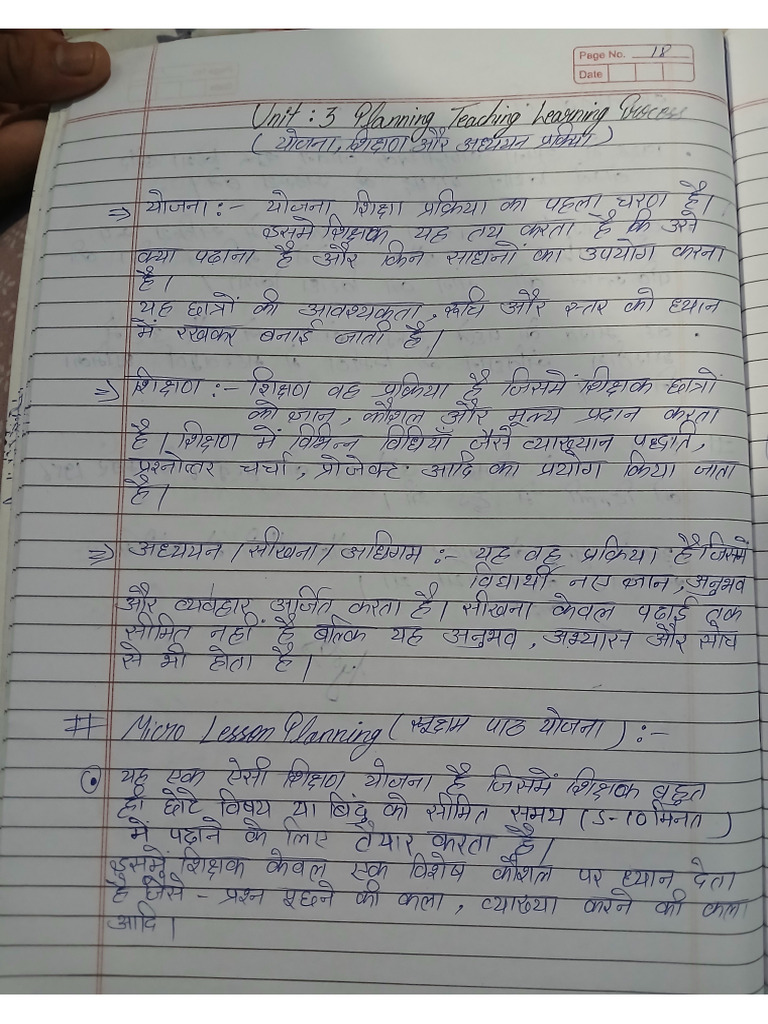 Page No. 18
Date
Unit : 3 Planning Teaching Learning Process
( योजना, शिक्षण और अध्ययन प्रक्रिया )
⇒ योजना :- योजना शिक्षा प्रक्रिया का पहला चरण है।
इसमे शिक्षक यह तय करता है कि उसे
क्या पढाना है और किन साधनों का उपयोग करना
है।
यह छात्रों की आवश्यकता, रूचि और स्तर को ध्यान
में रखकर बनाई जाती है।
⇒ शिक्षण :- शिक्षण वह प्रक्रिया है जिसमें शिक्षक छात्रों
को ज्ञान, कौशल और मूल्य प्रदान करता
है। शिक्षण में विभिन्न विधियाँ जैसे व्याख्यान पद्धति,
प्रश्नोत्तर चर्चा, प्रोजेक्ट आदि का प्रयोग किया जाता
है।
⇒ अध्ययन / सीखना / अधिगम :- यह वह प्रक्रिया है जिसमें
विद्यार्थी नए ज्ञान, अनुभव
और व्यवहार अर्जित करता है। सीखना केवल पढाई तक
सीमित नहीं है बल्कि यह अनुभव, अभ्यास और सोच
से भी होता है।
# Micro Lesson Planning ( सूक्ष्म पाठ योजना ) :-
यह एक ऐसी शिक्षण योजना है जिसमें शिक्षक बहुत
ही छोटे विषय या बिंदु को सीमित समय (5-10 मिनत)
में पढ़ाने के लिए तैयार करता है।
इसमें शिक्षक केवल एक विशेष कौशल पर ध्यान देता
है जैसे - प्रश्न पूछने की कला, व्याख्या करने की कला
आदि।